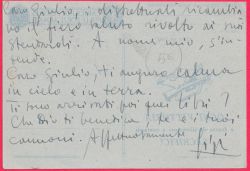 Caro Giulio, i disherbati ricambia
no il fiero saluto rivolto ai suoi
A nome mio, s'in-
tende.
Caro Giulio, ti auguro calma
in cielo e in terra.
Ti sono arrivati poi quei libri?
Che Dio ti benedica, te e i tuoi
cannoni. Affettuosamente